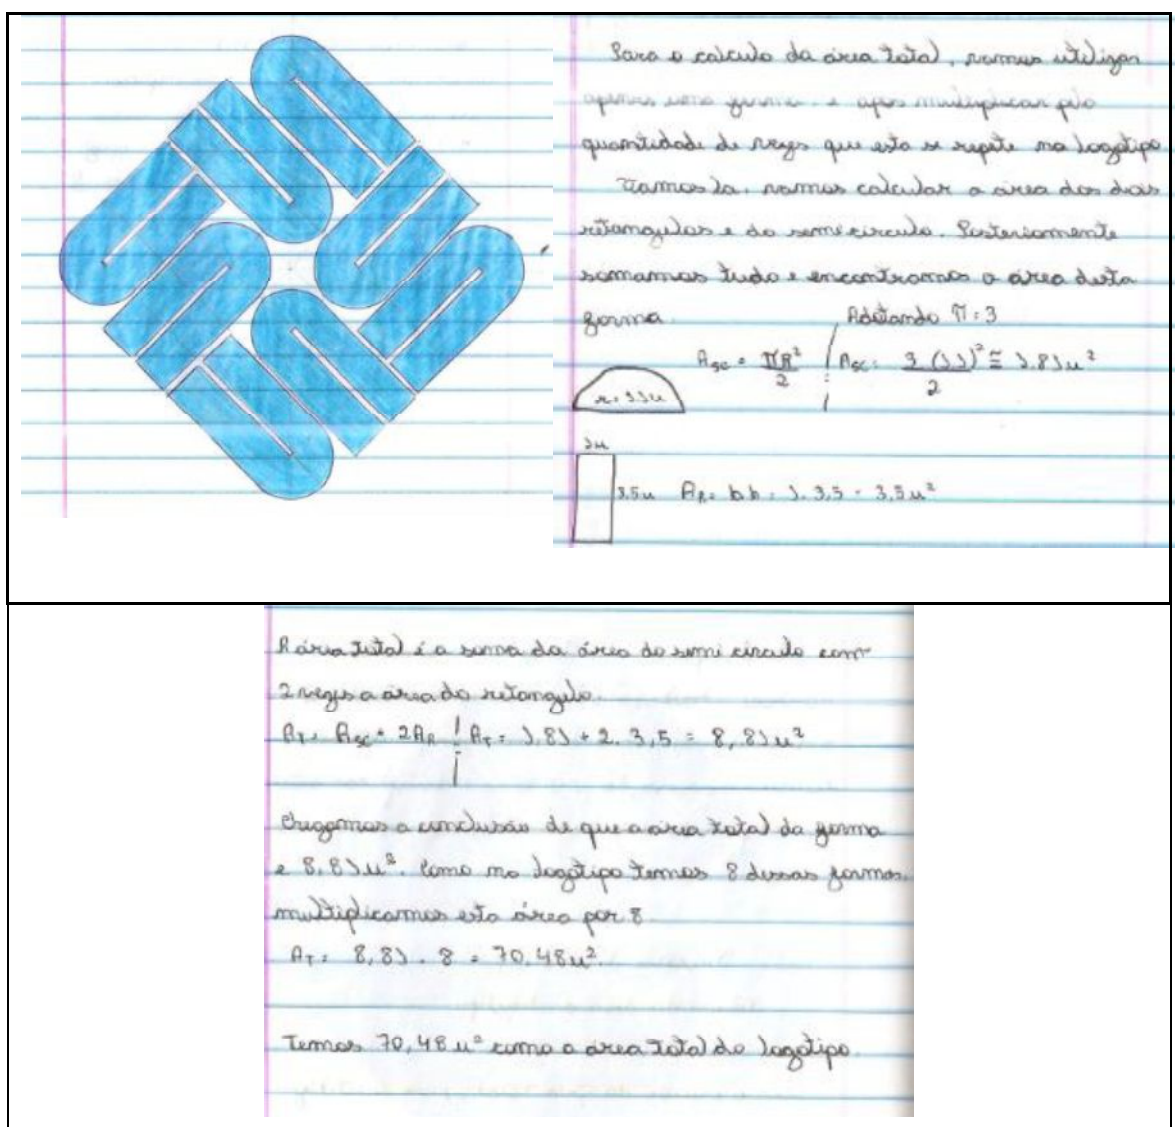 Para o calculo da área total, vamos utilizar
apenas uma forma. e apos multiplicar pela
quantidade de vezes que esta se repete no logotipo
Vamos la, vamos calcular a área dos dois
retangulos e do semicirculo. Posteriormente
somamos tudo e encontramos a área desta
forma.
Adotando π = 3
Asc = πR²/2 Asc = 3 (1,1)²/2 ≅ 1.81u²
r = 1.1u
1u
3.5u AR = b.h = 1. 3,5 = 3,5u²
A área total é a soma da área do semi circulo com
2 vezes a área do retangulo.
AT = Asc + 2AR AT = 1,81 + 2. 3,5 = 8,81u²
Chegamos a conclusão de que a área total da forma
e 8.81u². Como no logotipo temos 8 dessas formas,
multiplicamos esta área por 8
AT = 8,81 . 8 = 70.48u².
Temos 70,48 u² como a área total do logotipo.